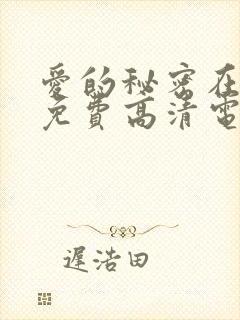 愛的秘密在
免費高清電
遲浩田